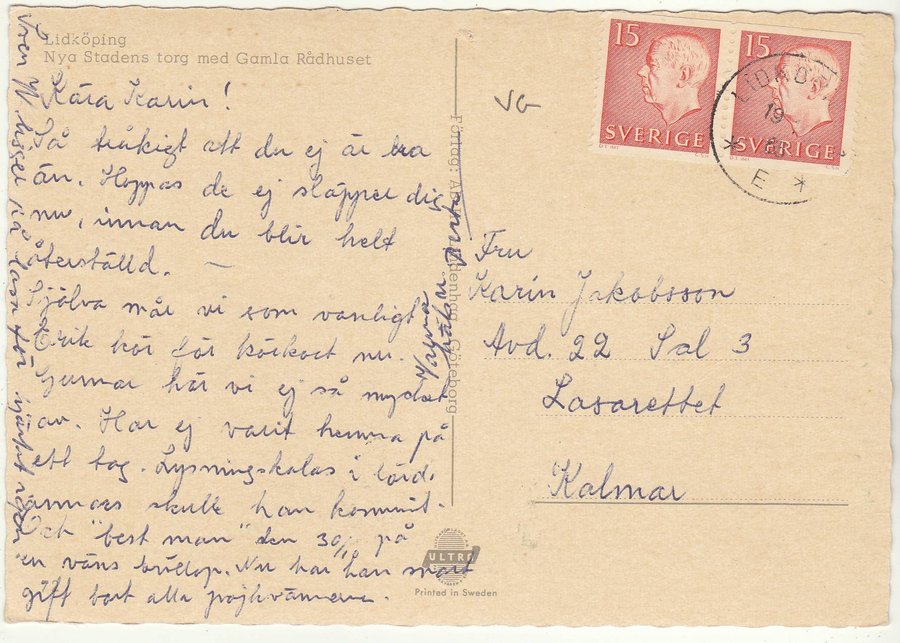 Lidköping
Nya Stadens torg med Gamla Rådhuset
Kära Karin!
Så tråkigt att du ej är bra
än. Hoppas de ej släpper dig
nu, innan du blir helt
återställd. —
Själva mår vi som vanligt
Erik kör för körkort nu.
Gunnar hör vi ej så mycket
av. Har ej varit hemma på
ett tag. Lysningskalas i lörd.
annars skulle han kommit.
Och "best man" den 30/ på
en väns bröllop. Nu har han snart
gift bort alla pojkvännerna.
Sven
ligger på
för
Förlag: Göteborg
VG
15
SVERIGE
15
SVERIGE
19
E
Fru
Karin Jakobsson
Avd. 22 Sal 3
Lasarettet
Kalmar
ULTRA
Printed in Sweden